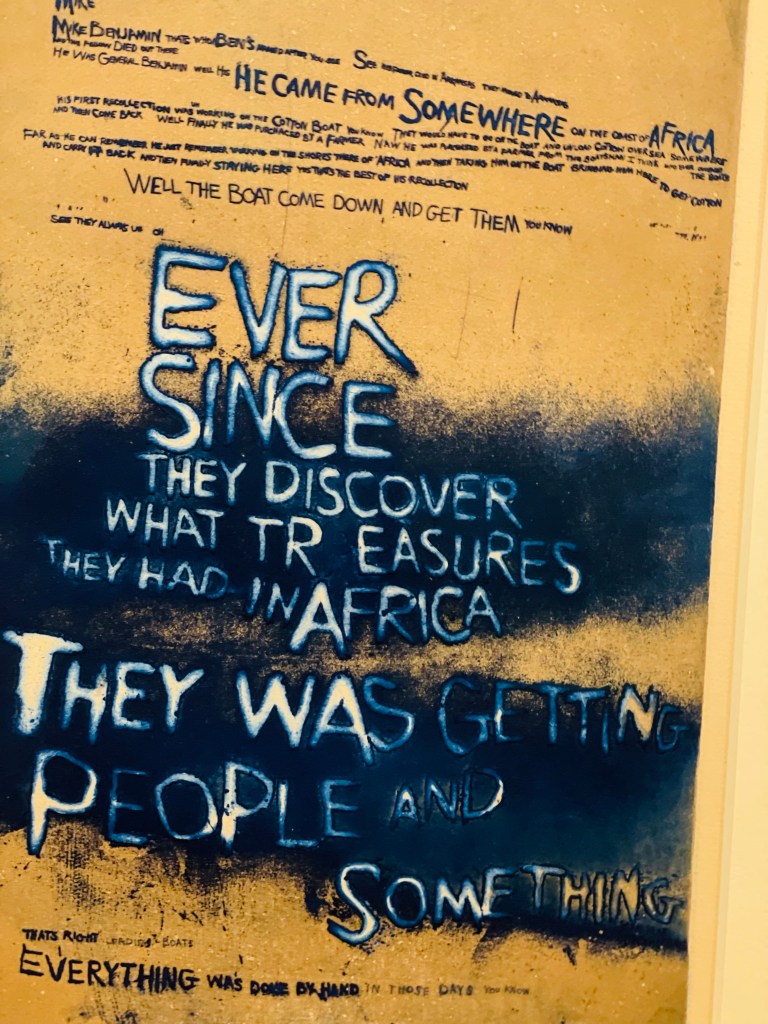 MIKE
MIKE BENJAMIN THATS WHO BEN'S NAMED AFTER YOU SEE SEE HIS FATHER DIED IN ARKANSAS THEY MOVED TO ARKANSAS
AND THE FELLOW DIED OUT THERE
HE WAS GENERAL BENJAMIN WELL HE HE CAME FROM SOMEWHERE ON THE COAST OF AFRICA
HIS FIRST RECOLLECTION WAS WORKING ON THE COTTON BOAT YOU KNOW THAT WOULD HAVE TO GO ON THE BOAT AND UNLOAD COTTON OVERSEA SOMEWHERE
AND THEN COME BACK WELL FINALLY HE WAS PURCHACED BY A FARMER NAW HE WAS PURCHASED BY A FARMER FROM THE BOATSMAN I THINK THE BOATS
FAR AS HE CAN REMEMBER HE JUST REMEMBER WORKING ON THE SHORES THERE OF AFRICA AND THEN TAKING HIM ON THE BOAT BRINGING HIM HERE TO GET COTTON
AND CARRY IT BACK AND THEN FINALLY STAYING HERE YES THATS THE BEST OF HIS RECOLLECTION
WELL THE BOAT COME DOWN AND GET THEM YOU KNOW
SEE THEY ALWAYS US OH
EVER
SINCE
THEY DISCOVER
WHAT TR EASURES
THEY HAD IN AFRICA
THEY WAS GETTING
PEOPLE AND
SOMETHING
THATS RIGHT LOADING BOATS
EVERYTHING WAS DONE BY HAND IN THOSE DAYS YOU KNOW